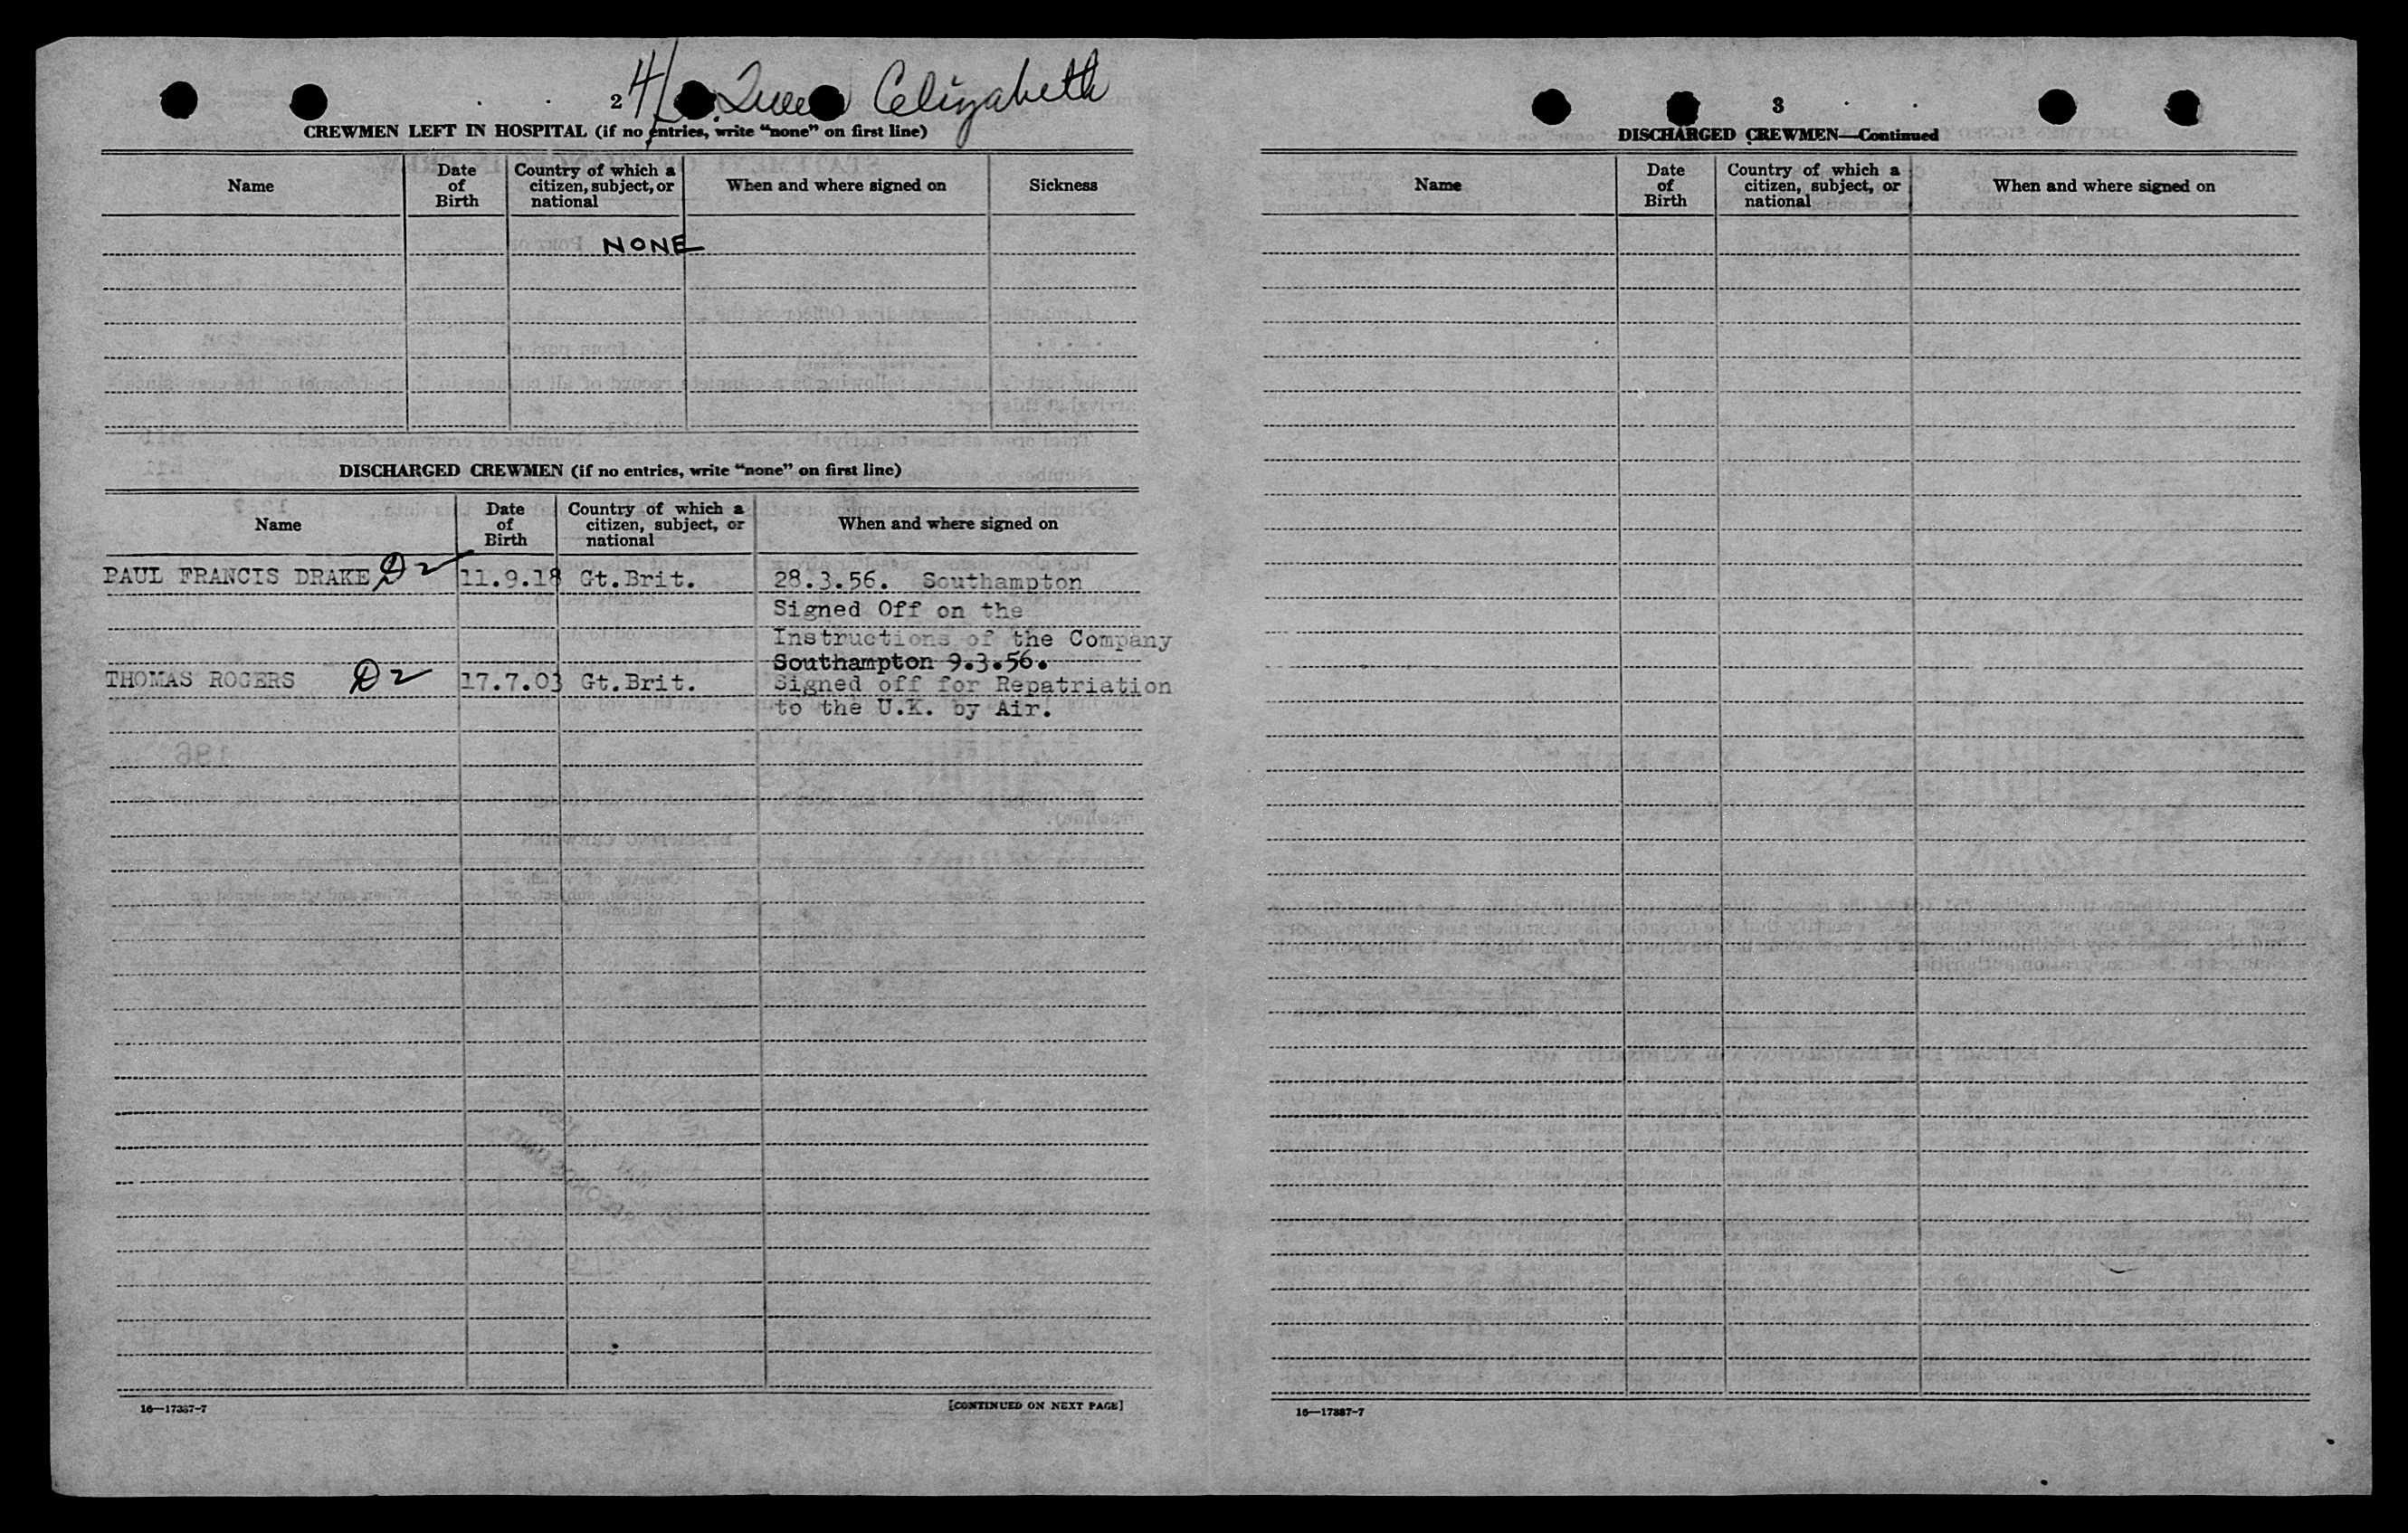 2 4/ Queen Elizabeth
CREWMEN LEFT IN HOSPITAL (if no entries, write “none” on first line)
Name
Date of Birth
Country of which a citizen, subject, or national
When and where signed on
Sickness
NONE
DISCHARGED CREWMEN (if no entries, write “none” on first line)
Name
Date of Birth
Country of which a citizen, subject, or national
When and where signed on
PAUL FRANCIS DRAKE D2 11.9.18 Gt.Brit. 28.3.56. Southampton
Signed Off on the
Instructions of the Company
Southampton 9.3.56.
THOMAS ROGERS D2 17.7.03 Gt.Brit. Signed off for Repatriation
to the U.K. by Air.
16—17387-7
[CONTINUED ON NEXT PAGE]
3
DISCHARGED CREWMEN—Continued
Name
Date of Birth
Country of which a citizen, subject, or national
When and where signed on
16—17387-7